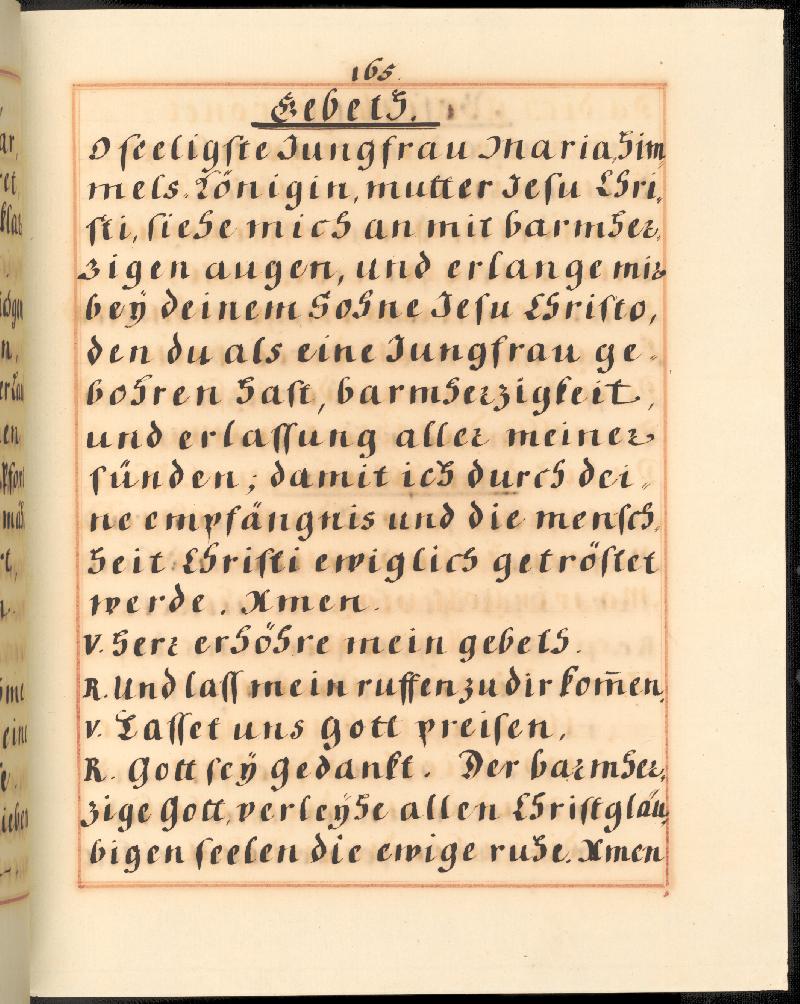 165.
Gebeth.
O seeligste Jungfrau Maria, Him
mels-Königin, mutter Jesu Chri„
sti, siehe mich an mit barmher„
zigen augen, und erlange mir
beÿ deinem Sohne Jesu Christo,
den du als eine Jungfrau ge„
bohren hast, barmherzigkeit,
und erlassung aller meiner
sünden; damit ich durch dei„
ne empfängnis und die mensch„
heit Christi ewiglich getröstet
werde. Amen.
V. Herr erhöhre mein gebeth.
R. Und lass mein ruffen zu dir kom̄en,
V. Lasset uns Gott preisen,
R. Gott seÿ gedankt. Der barmher„
zige Gott, verleÿhe allen Christgläu„
bigen seelen die ewige ruhe. Amen